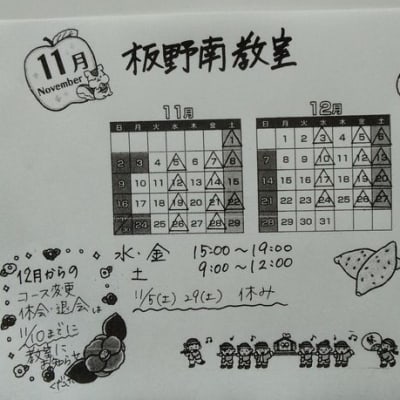 11月
November
板野南教室
11月
日 月 火 水 木 金 土
1
2 3 4 5 6 7 8
9 10 11 12 13 14 15
16 17 18 19 20 21 22
24 25 26 27 28 29
12月
日 月 火 水 木 金 土
1 2 3 4 5 6
7 8 9 10 11 12 13
14 15 16 17 18 19 20
21 22 23 24 25 26 27
28 29 30 31
水・金 15:00〜19:00
土 9:00〜12:00
11/5(土) 29(土) 休み
12月からの
コース変更
休会・退会は
11/10までに
教室に
お知らせ